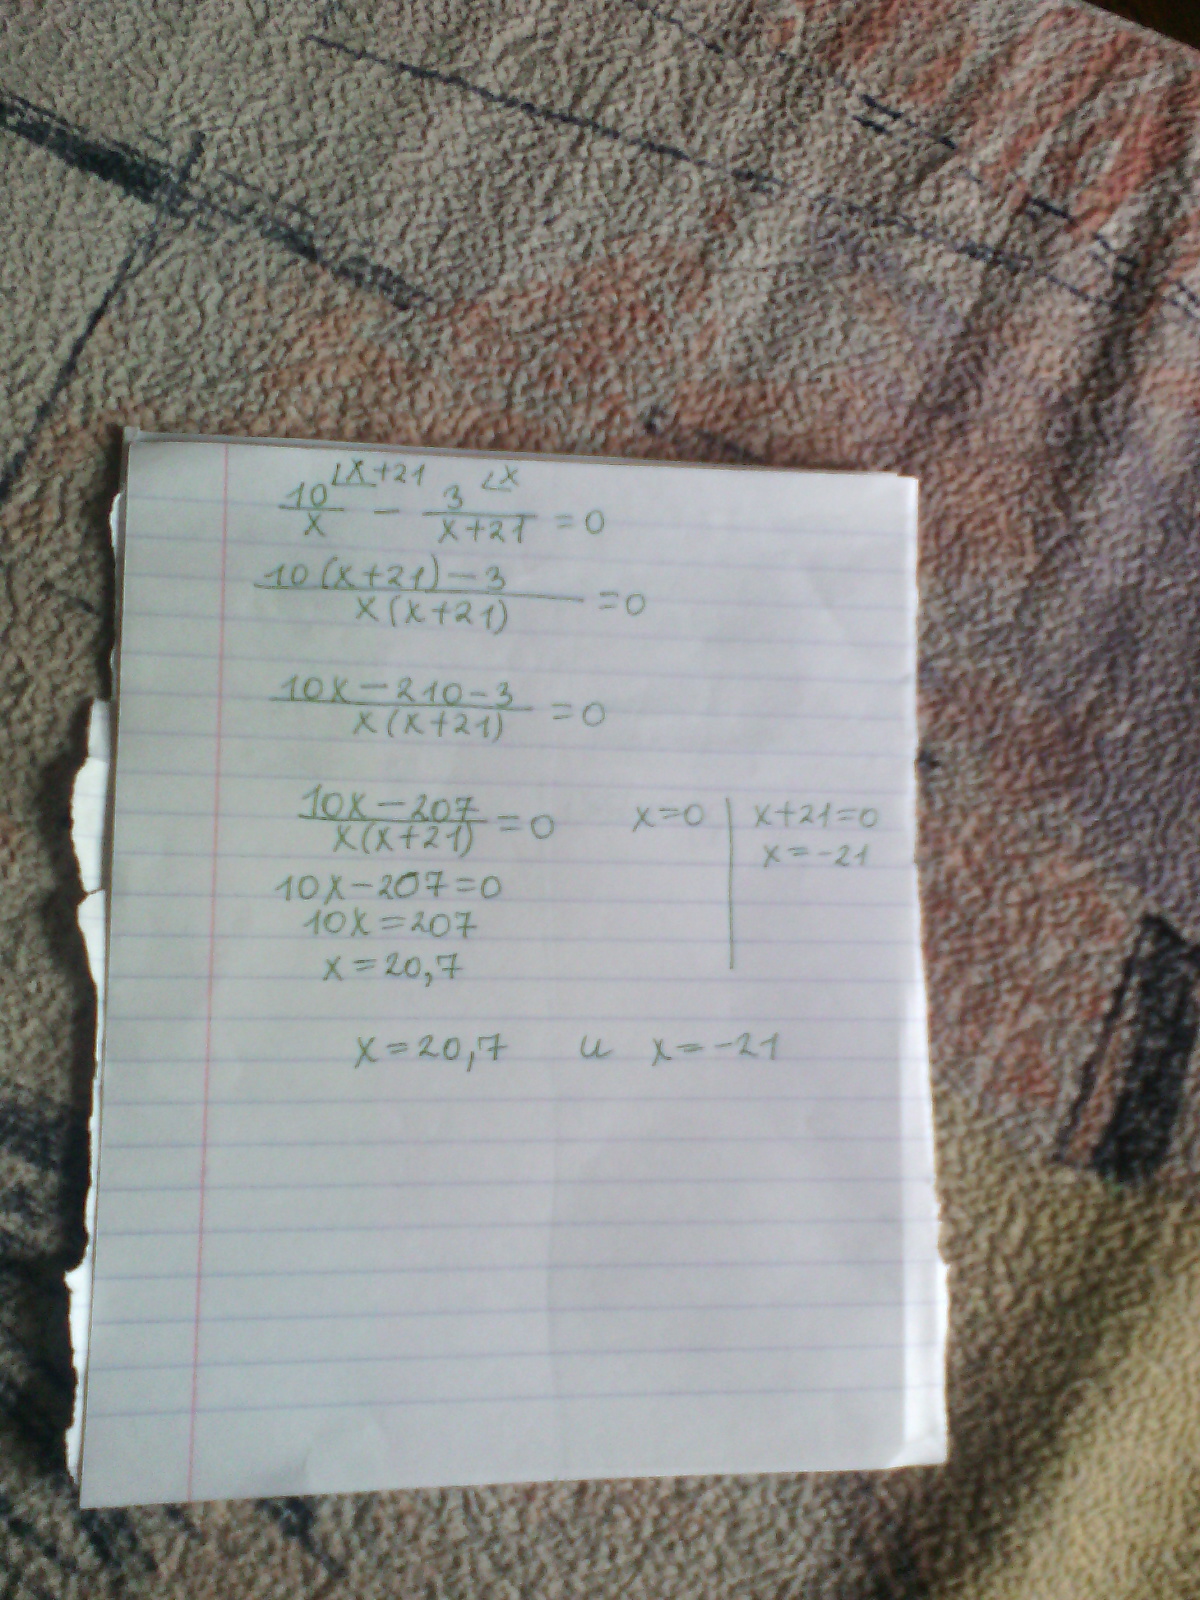 10/x ⌊x+21 − 3/(x+21) ⌊x = 0
(10(x+21)−3)/(x(x+21)) = 0
(10x−210−3)/(x(x+21)) = 0
(10x−207)/(x(x+21)) = 0 x=0 | x+21=0
x=-21
10x−207=0
10x=207
x=20,7
x=20,7 и x=-21